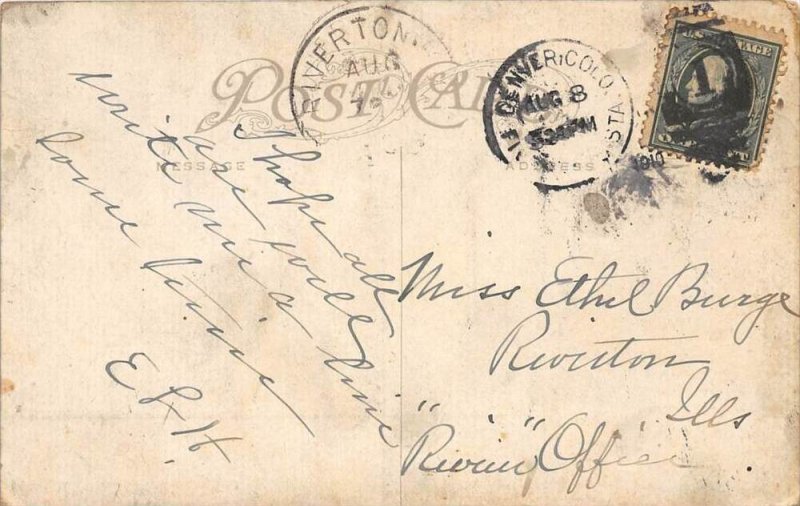 POST CARD
RIVERTON
AUG
DENVER, COLO.
AUG 8
PM
STA.
1910
U.S. POSTAGE
1
MESSAGE
ADDRESS
I hope all
are well
write me a line
some time
E L H.
Miss Ethel Burge
Riverton
Ills
" "
Office